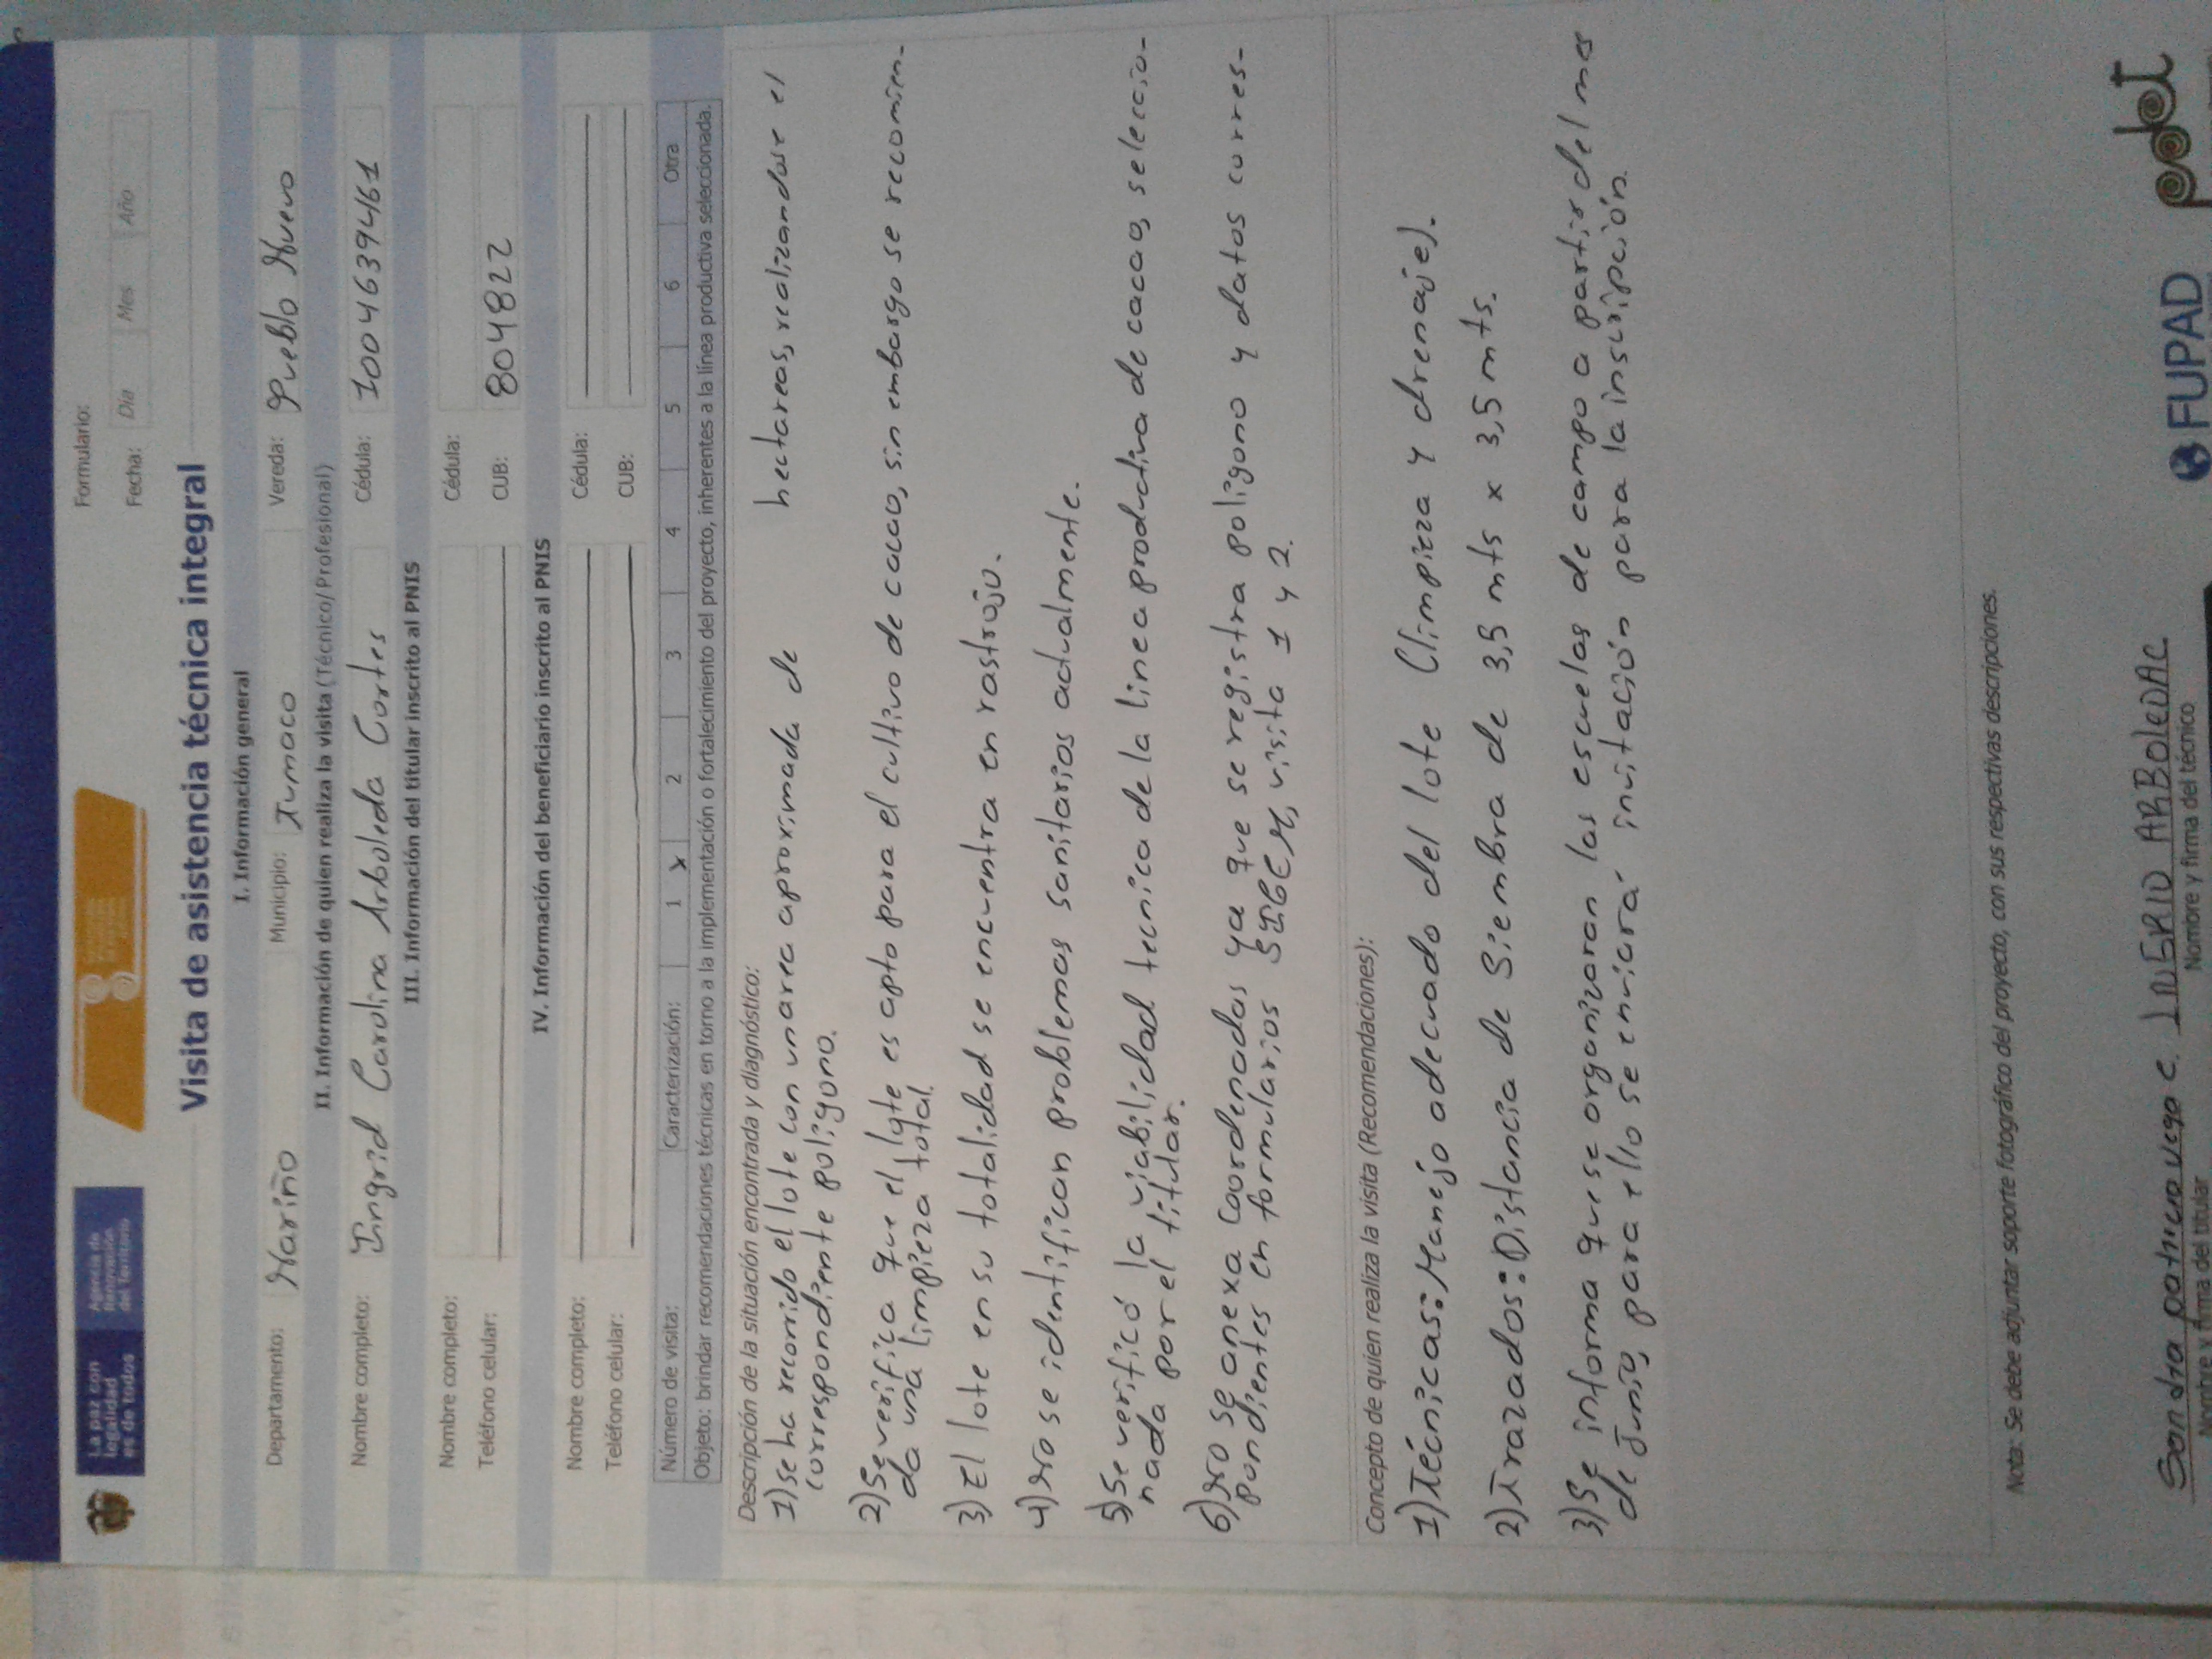 La paz con
legalidad
es de todos
Agencia de
Renovación
del Territorio
Formulario:
Fecha: Día Mes Año
Visita de asistencia técnica integral
I. Información general
Departamento: Nariño Municipio: Tumaco Vereda: Pueblo Nuevo
II. Información de quien realiza la visita (Técnico/Profesional)
Nombre completo: Ingrid Carolina Arboleda Cortes Cédula: 1004639461
III. Información del titular inscrito al PNIS
Nombre completo: Cédula:
Teléfono celular: CUB: 804822
IV. Información del beneficiario inscrito al PNIS
Nombre completo: Cédula:
Teléfono celular: CUB:
Número de visita: Caracterización: 1 x 2 3 4 5 6 Otra
Objeto: brindar recomendaciones técnicas en torno a la implementación o fortalecimiento del proyecto, inherentes a la línea productiva seleccionada.
Descripción de la situación encontrada y diagnóstico:
1) se ha recorrido el lote con un area aproximada de hectareas, realizandose el
correspondiente poligono.
2) Se verifica que el lote es apto para el cultivo de cacao, sin embargo se recomien-
da una limpieza total.
3) El lote en su totalidad se encuentra en rastrojo.
4) No se identifican problemas sanitarios actualmente.
5) Se verificó la viabilidad tecnica de la linea productiva de cacao, seleccio-
nada por el titular.
6) No se anexa coordenadas ya que se registra poligono y datos corres-
pondientes en formularios visita 1 y 2.
Concepto de quien realiza la visita (Recomendaciones):
1) Técnicas: Manejo adecuado del lote (limpieza y drenaje).
2) Trazados: Distancia de Siembra de 3,5 mts x 3,5 mts.
3) Se informa que se organizaran las escuelas de campo a partir del mes
de Junio, para ello se enviará invitación para la inscripción.
Nota: Se debe adjuntar soporte fotográfico del proyecto, con sus respectivas descripciones.
Sandra patricia vega c. INGRID ARBOLEDA C
Nombre y firma del titular Nombre y firma del técnico
FUPAD pdet